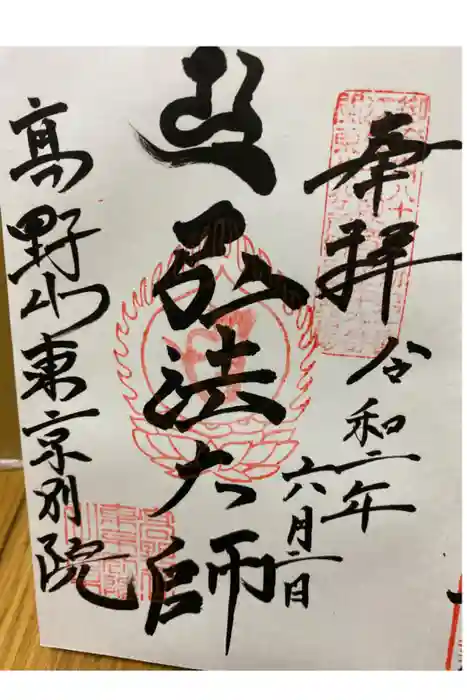 奉拝
令和二年
六月二日
弘法大師
高野山東京別院